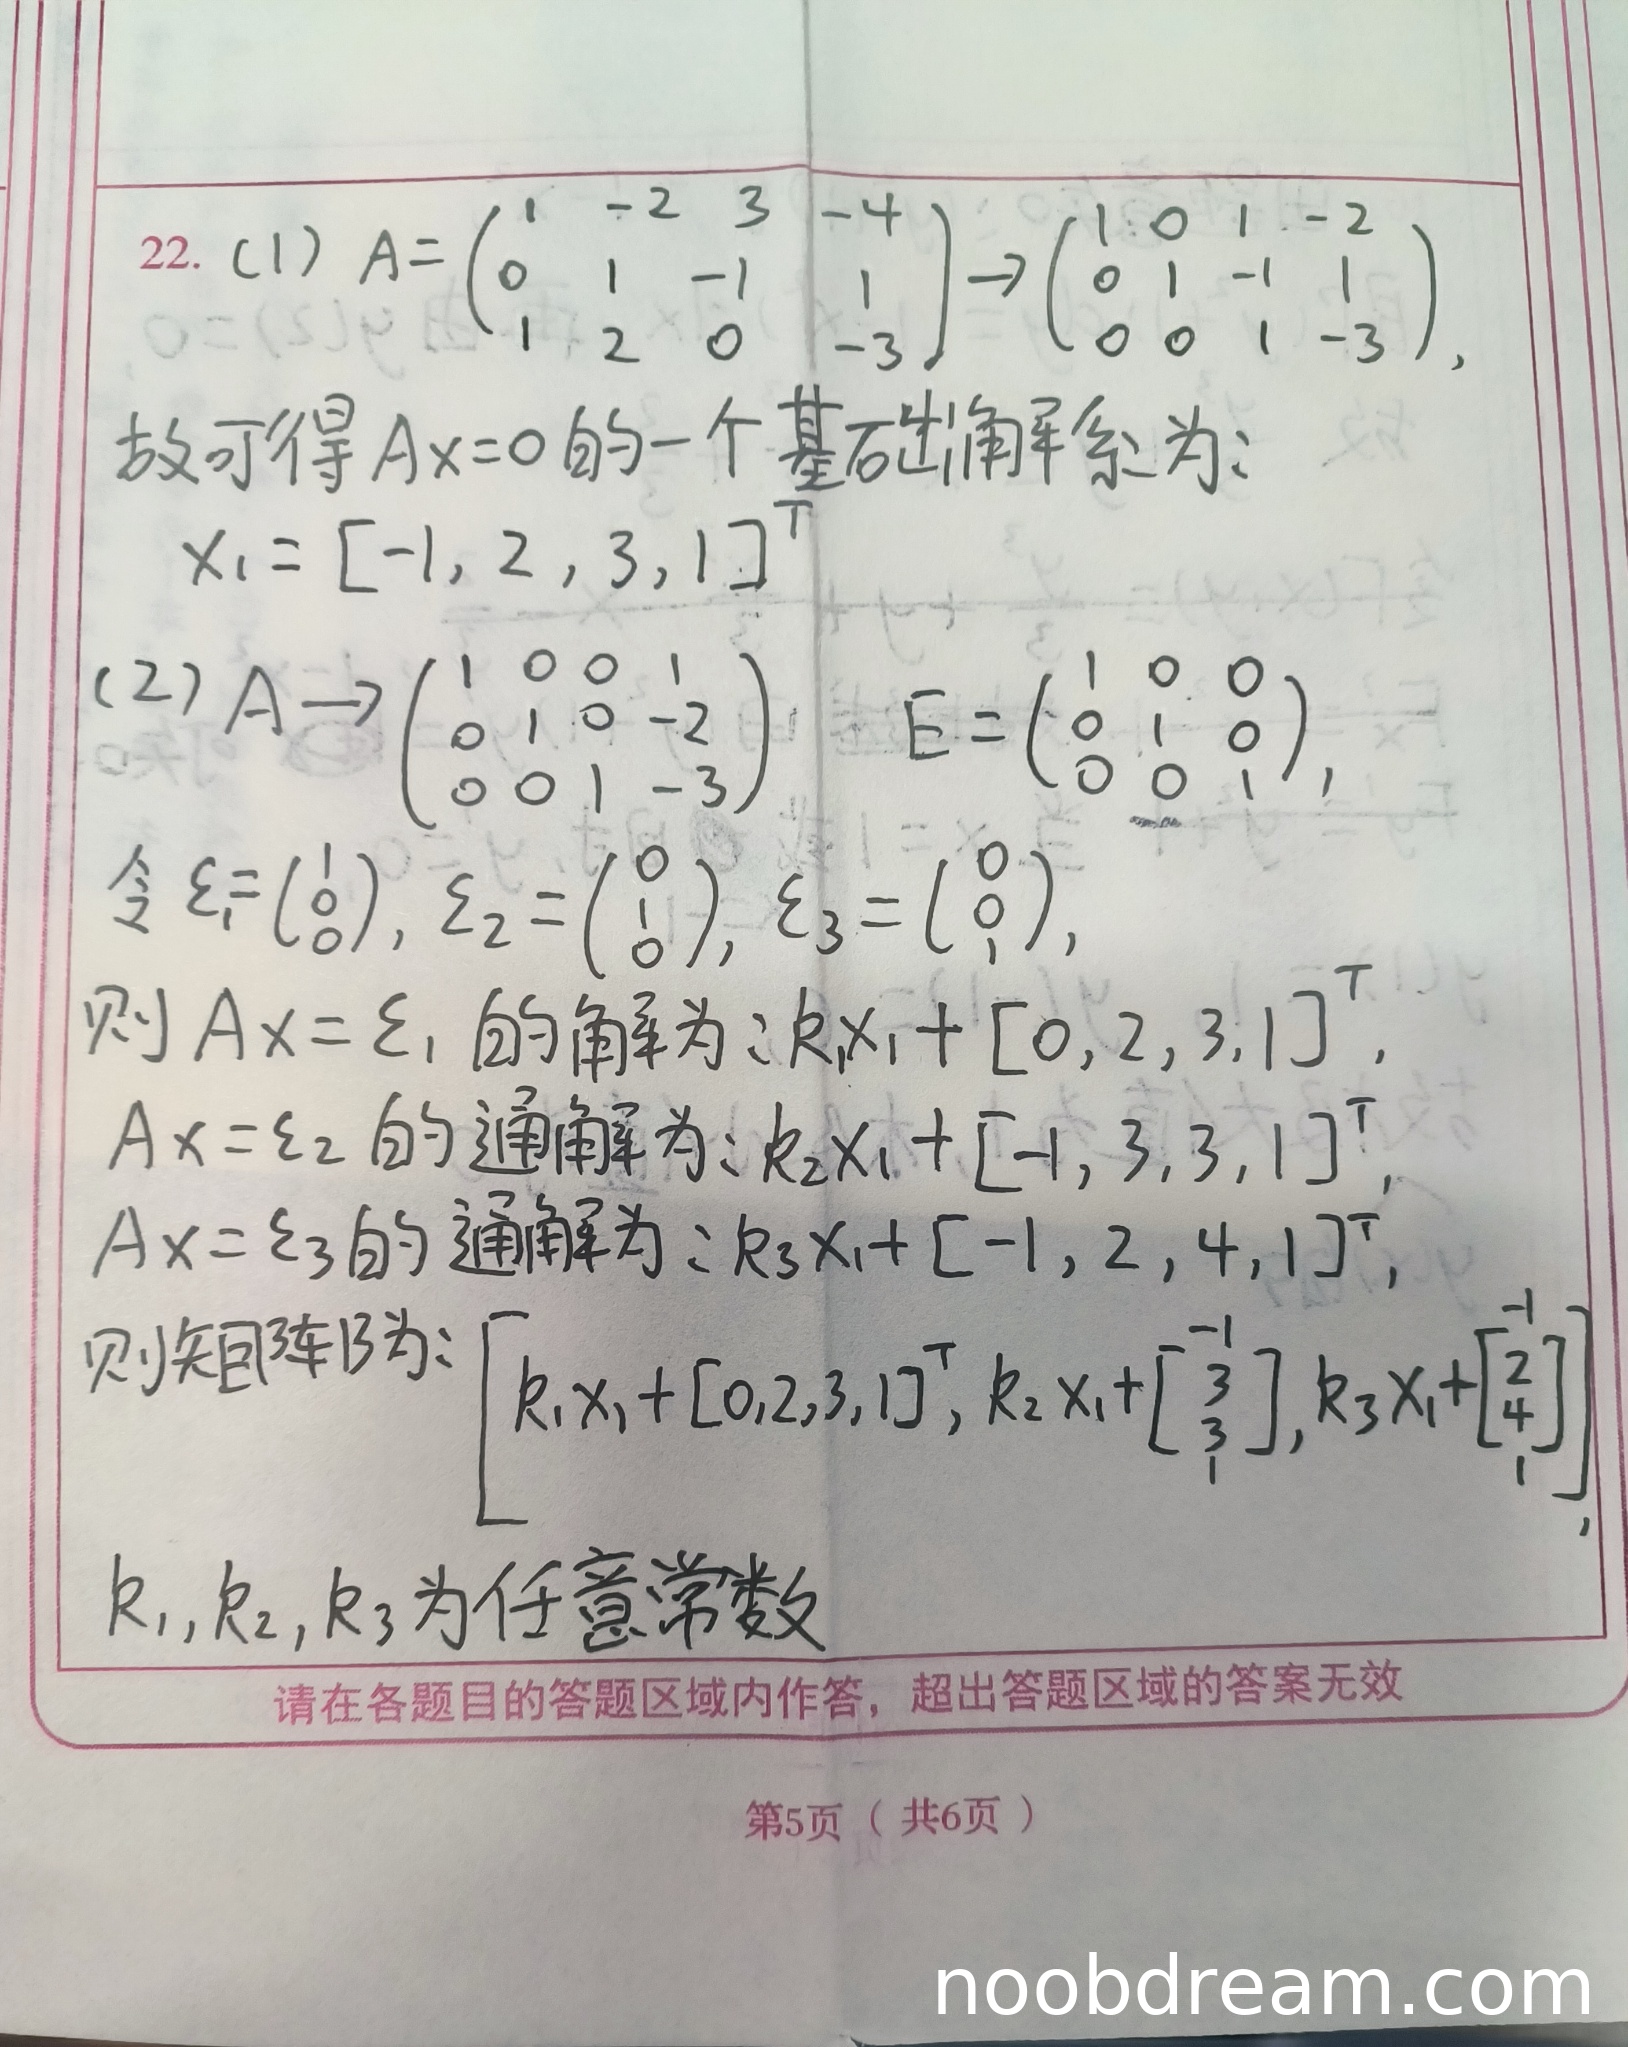 22. (1) A = ( 1 -2 3 -4 ; 0 1 -1 1 ; 1 2 0 -3 ) → ( 1 0 1 -2 ; 0 1 -1 1 ; 0 0 1 -3 ),
故可得 Ax=0 的一个基础解系为:
x₁ = [-1, 2, 3, 1]ᵀ
(2) A → ( 1 0 0 1 ; 0 1 0 -2 ; 0 0 1 -3 ) E = ( 1 0 0 ; 0 1 0 ; 0 0 1 ),
令 ε₁ = ( 1 ; 0 ; 0 ), ε₂ = ( 0 ; 1 ; 0 ), ε₃ = ( 0 ; 0 ; 1 ),
则 Ax = ε₁ 的解为: k₁x₁ + [0, 2, 3, 1]ᵀ,
Ax = ε₂ 的通解为: k₂x₁ + [-1, 3, 3, 1]ᵀ,
Ax = ε₃ 的通解为: k₃x₁ + [-1, 2, 4, 1]ᵀ,
则矩阵B为: [ k₁x₁ + [0,2,3,1]ᵀ, k₂x₁ + [ -1 ; 3 ; 3 ; 1 ], k₃x₁ + [ -1 ; 2 ; 4 ; 1 ] ],
k₁, k₂, k₃ 为任意常数
请在各题目的答题区域内作答，超出答题区域的答案无效
第5页（共6页）
noobdream.com